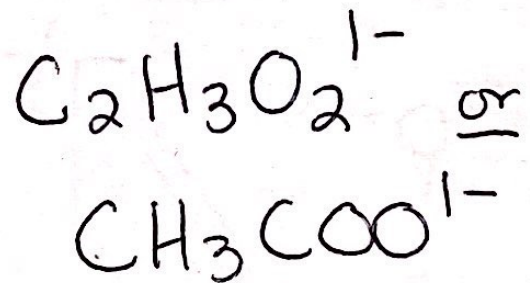 C₂H₃O₂¹⁻ or
CH₃COO¹⁻